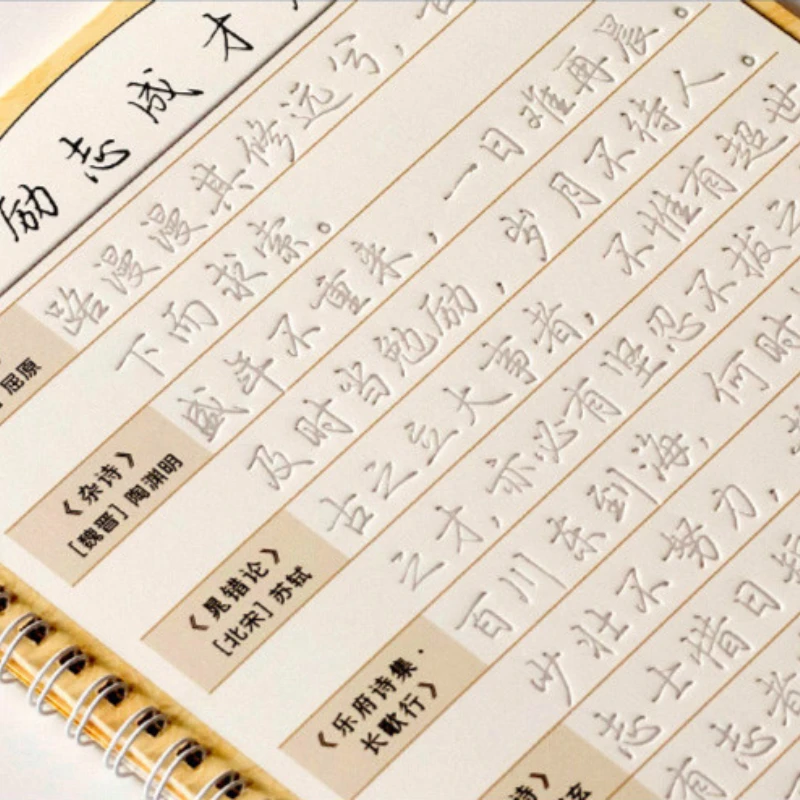 励志成才
路漫漫其修远兮，
屈原
下而求索。
《杂诗》
[魏晋] 陶渊明
盛年不重来，一日难再晨。
及时当勉励，岁月不待人。
《晁错论》
[北宋] 苏轼
古之立大事者，不惟有超世
之才，亦必有坚忍不拔之
《乐府诗集·
长歌行》
百川东到海，何时
少壮不努力，
诗》
玄
志士惜日短
有志者